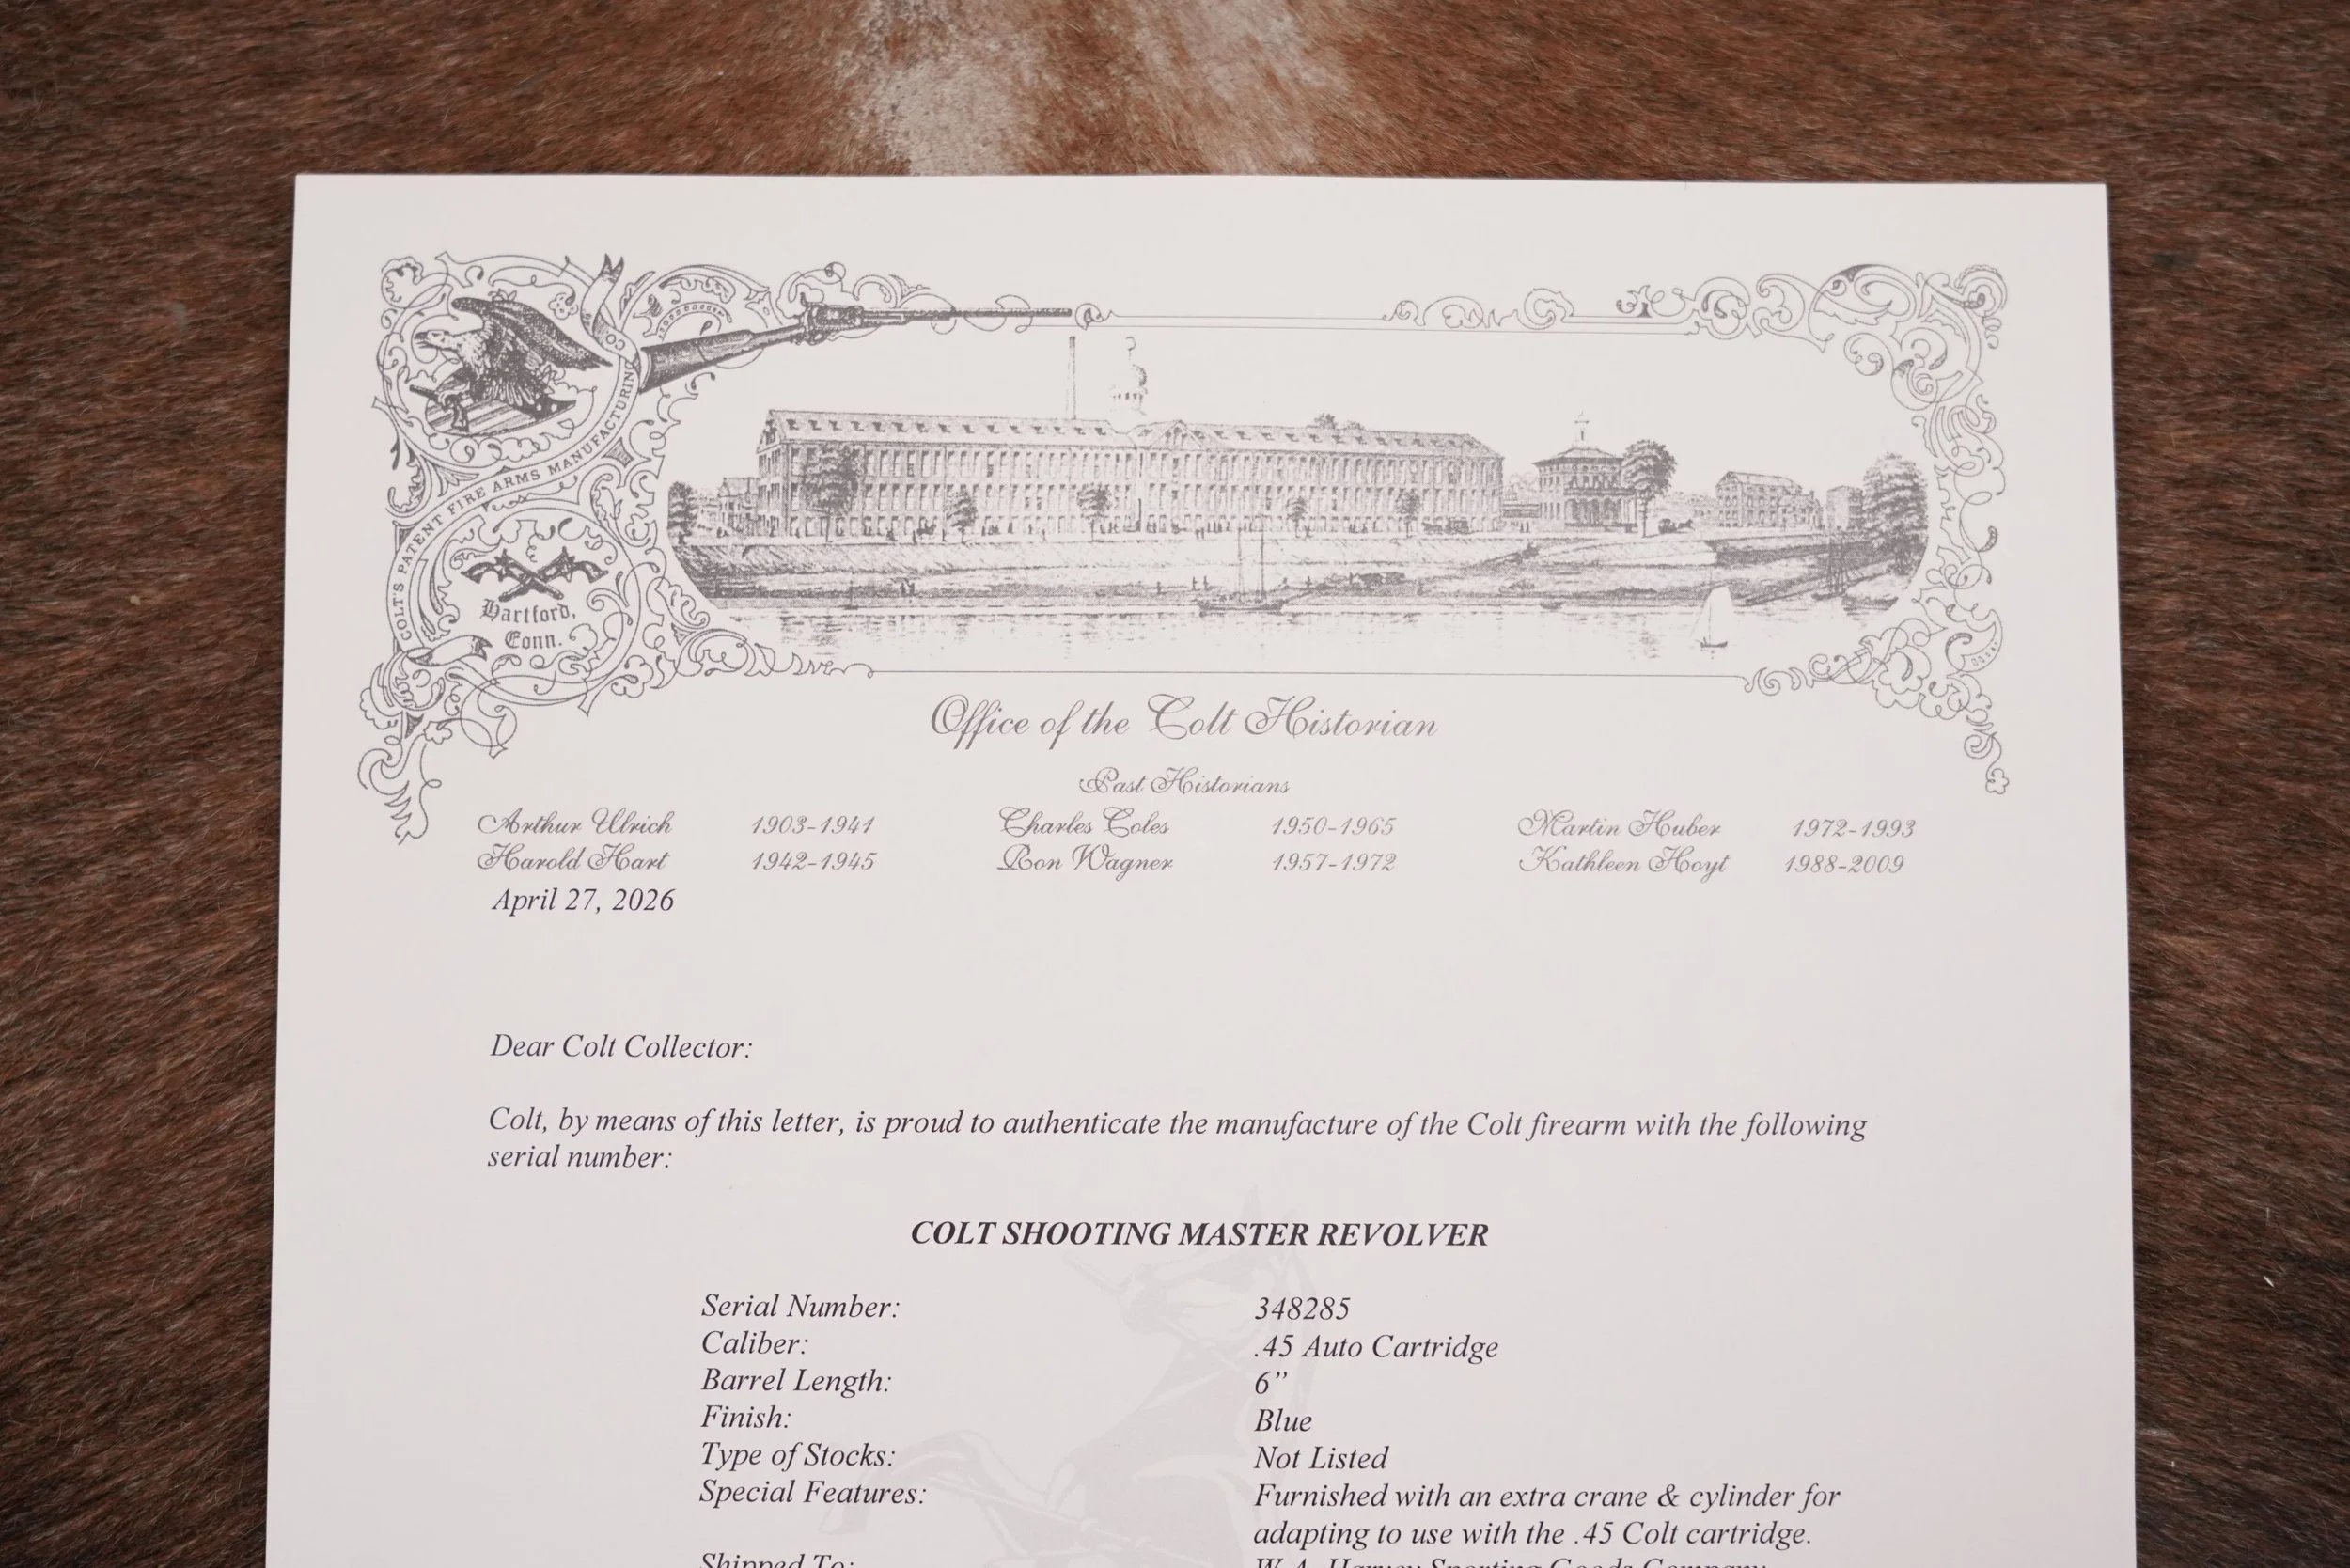 COLT'S PATENT FIRE ARMS MANUFACTURING CO
Hartford,
Conn.
Office of the Colt Historian
Past Historians
Arthur Ulrich 1903-1941 Charles Coles 1950-1965 Martin Huber 1972-1993
Harold Hart 1942-1945 Ron Wagner 1957-1972 Kathleen Hoyt 1988-2009
April 27, 2026
Dear Colt Collector:
Colt, by means of this letter, is proud to authenticate the manufacture of the Colt firearm with the following
serial number:
COLT SHOOTING MASTER REVOLVER
Serial Number: 348285
Caliber: .45 Auto Cartridge
Barrel Length: 6”
Finish: Blue
Type of Stocks: Not Listed
Special Features: Furnished with an extra crane & cylinder for
adapting to use with the .45 Colt cartridge.
Shipped To: W. A. Harvey Sporting Goods Company